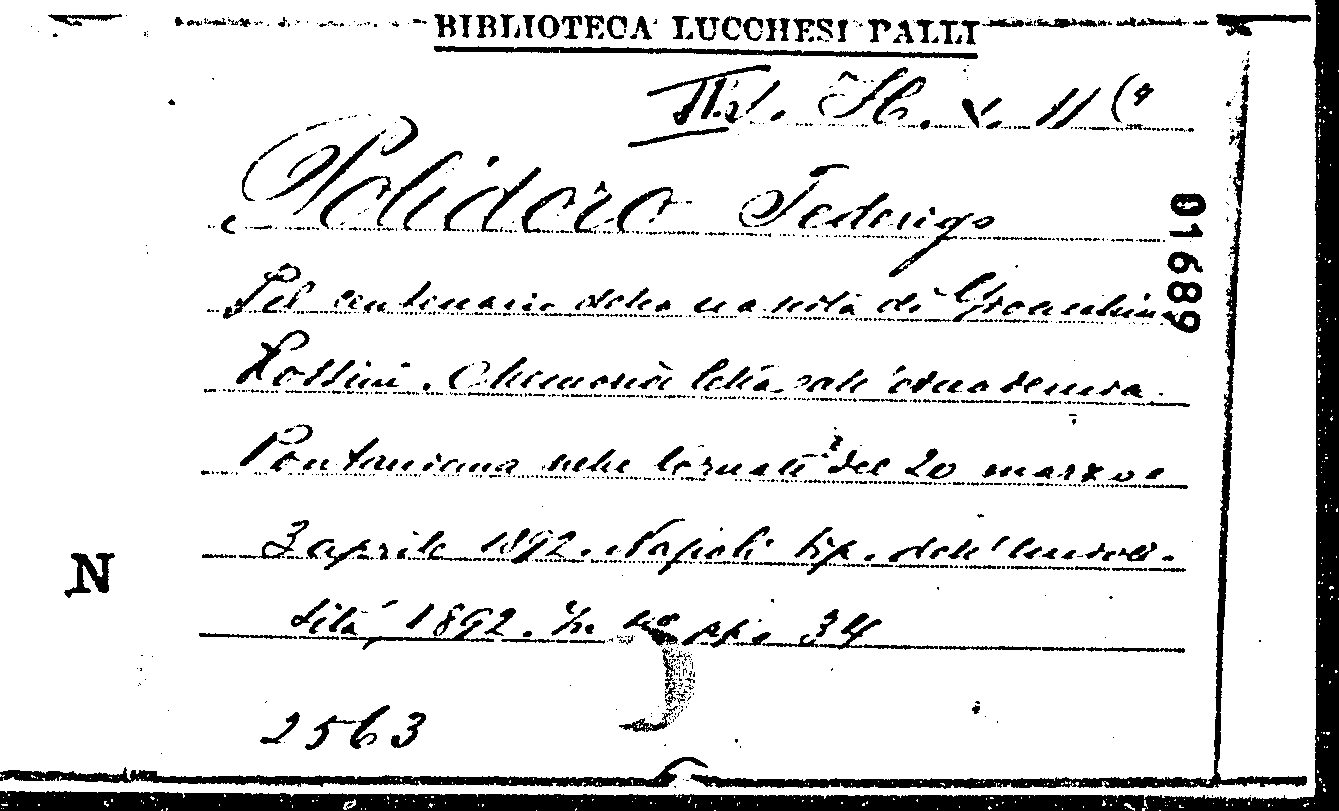 BIBLIOTECA LUCCHESI PALLI
Polidoro Federigo
01689
Pel centenario della nascita di Gioacchino
Rossini. Memoria letta all'Accademia
Pontaniana nelle tornate del 20 marzo e
3 aprile 1892. Napoli tip. dell'Univer-
N
sità, 1892. In pp. 34
2563